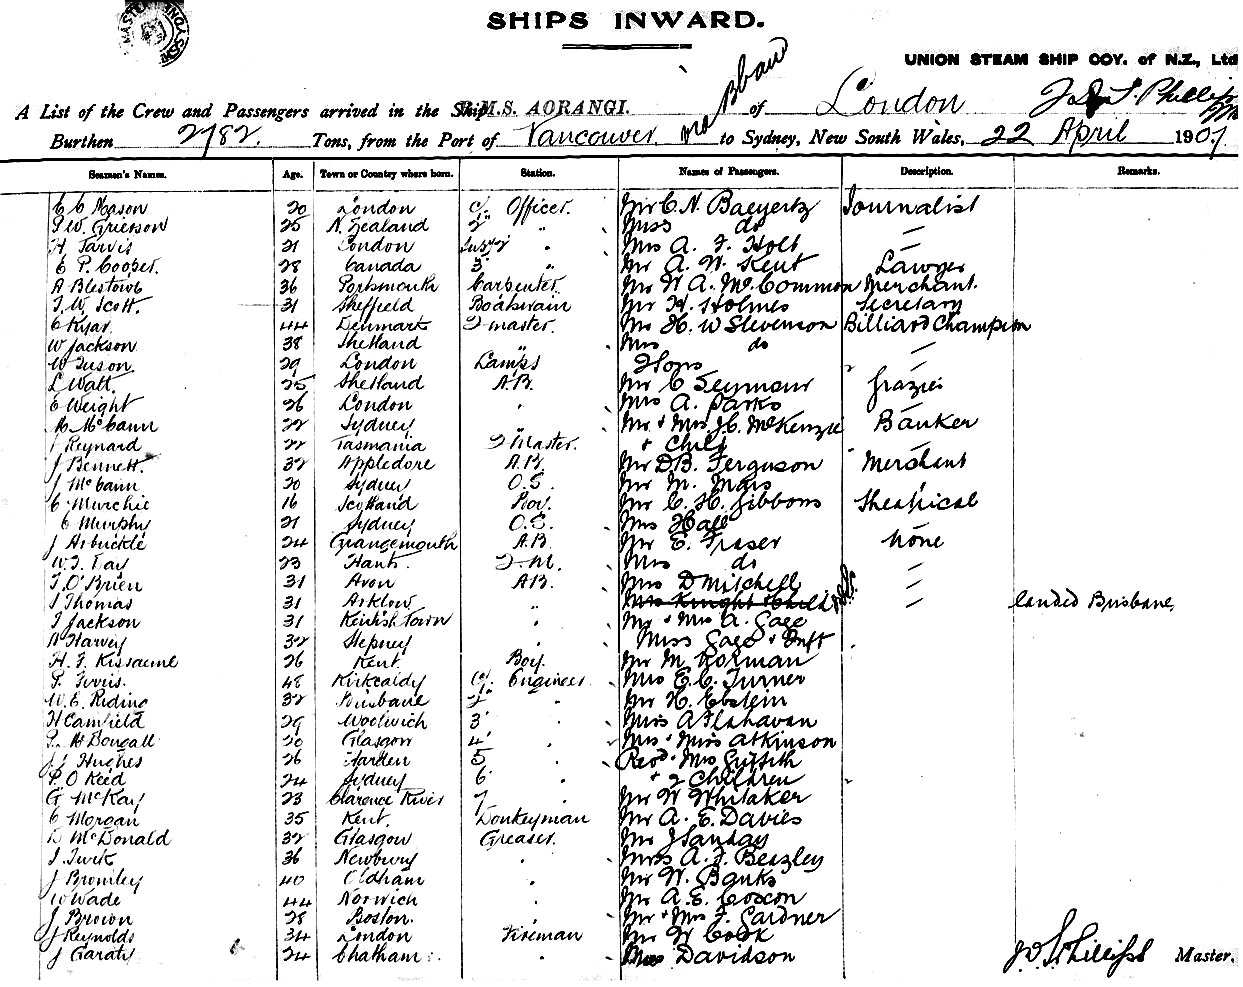 SHIPS INWARD.
UNION STEAM SHIP COY. of N.Z., Ltd
A List of the Crew and Passengers arrived in the Ship R.M.S. AORANGI. of London
Burthen 2782. Tons, from the Port of Vancouver to Sydney, New South Wales, 22 April 1907
Seamen's Names. Age. Town or Country where born. Station. Names of Passengers. Description. Remarks.
C C Mason 20 London Officer. Mr C. N. Baeyertz Journalist
Grierson 25 N. Zealand 2 " Miss do —
H Jarvis 21 London Mrs A. F. Holt —
C P. Cooper. 28 Canada 3 " Mr A. W. Kent Lawyer
A Blestowe 36 Portsmouth Carpenter Mr W A. McCommon Merchant.
J. W. Scott. 31 Sheffield Boatswain Mr H. Holmes Secretary
C Kyar 44 Denmark Q master. Mr H. W Stevenson Billiard Champion
W Jackson 38 Shetland " Mrs do —
W Tuson 29 London Lamps
L Watt. 25 Shetland A.B. Mr C Seymour Grazier
C Weight 26 London " Mrs A. Parks —
McCann 22 Sydney " Mr + Mrs J.C. McKenzie Banker
Reynard 22 Tasmania Q Master. + Child —
J Bennett. 32 Appledore A.B. Mr D.B. Ferguson Merchant
J McCann 20 Sydney O.S. Mr M. Mais —
C Murchie 16 Scotland Boy. Mr C. H. Gibbons Theatrical
C Murphy 21 Sydney O.S. Mrs Hall —
J Arbuckle 24 Grangemouth A.B. Mr E. Fraser None
W. J. Day 23 Hants. Q.M. Mrs do —
J. O'Brien 31 Avon A.B. Mrs D Mitchell —
J Thomas 31 Arklow " Mrs Knight + Child — landed Brisbane
J Jackson 31 Kentish Town " Mr + Mrs A. Gage
Harvey 32 Stepney " Miss Gage +
H. J. 26 Kent. Boy. Mr M.
48 Kirkcaldy Engineer. Mrs E. C. Turner
W. E. Riding 32 Brisbane 2 " Mr H. Ebstein
H Camfield 29 Woolwich 3 " Miss A Flahavan
McDougall 20 Glasgow 4 " Mrs + Miss Atkinson
J Hughes 26 5 " Revd + Mrs Griffith
P O Reed 24 Sydney 6 " + 2 Children
G McKay 23 Clarence River 7 Mr W Whitaker
C Morgan 35 Kent. Donkeyman Mr A. E. Davies
D McDonald 32 Glasgow Greaser. Mr J
J. Turk 36 Newbury " Mrs A. J. Beazley
J Bromley 40 Oldham " Mr W. Banks
W Wade 44 Norwich " Mr A. E. Coxon
J Brown 28 Boston. " Mr + Mrs F. Gardner
J Reynolds 34 London Fireman Mr W Cook
J 24 Chatham " Davidson
Master.